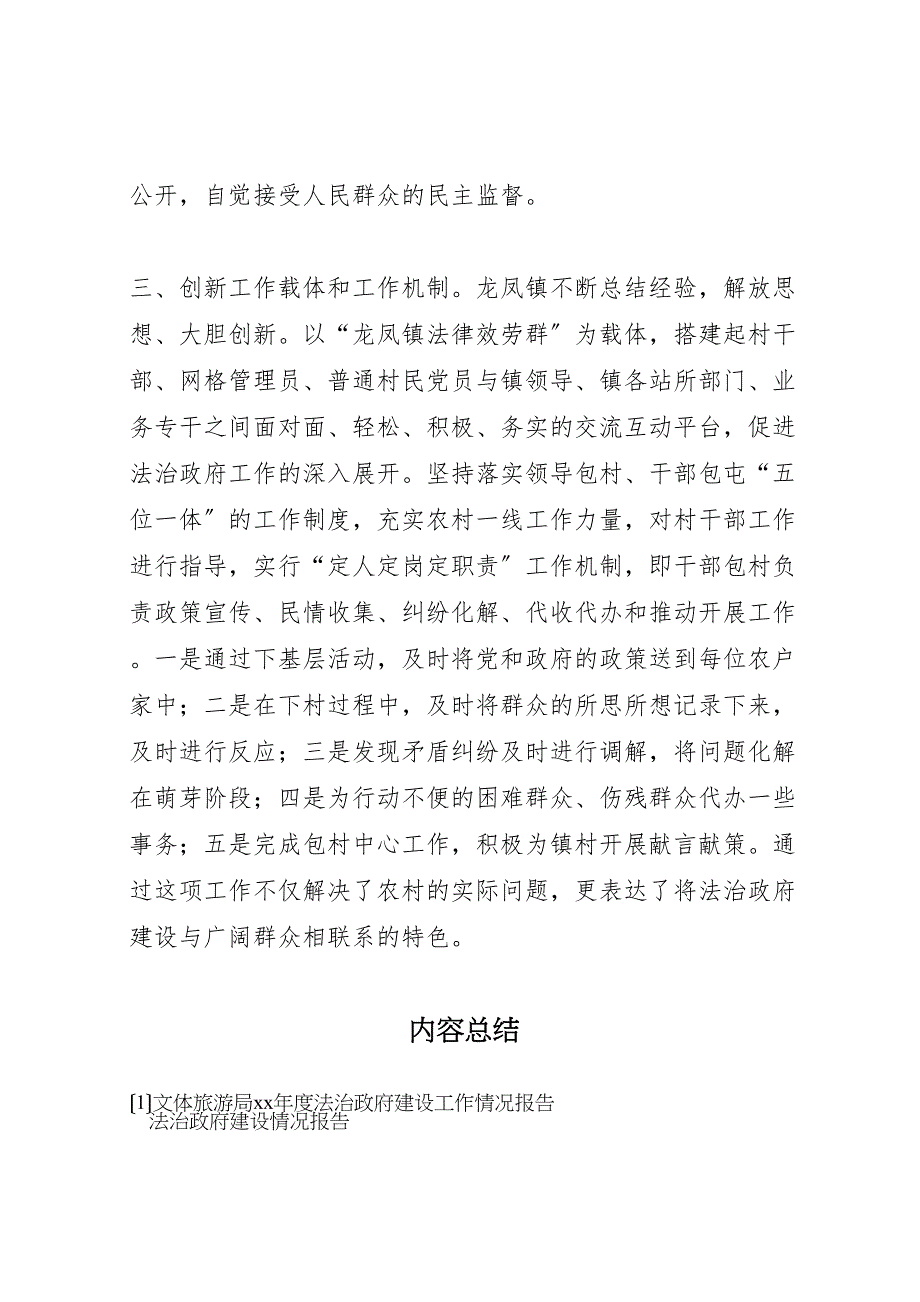 公开，自觉接受人民群众的民主监督。
三、创新工作载体和工作机制。龙凤镇不断总结经验，解放思
想、大胆创新。以“龙凤镇法律效劳群〞为载体，搭建起村干
部、网格管理员、普通村民党员与镇领导、镇各站所部门、业
务专干之间面对面、轻松、积极、务实的交流互动平台，促进
法治政府工作的深入展开。坚持落实领导包村、干部包屯“五
位一体〞的工作制度，充实农村一线工作力量，对村干部工作
进行指导，实行“定人定岗定职责〞工作机制，即干部包村负
责政策宣传、民情收集、纠纷化解、代收代办和推动开展工作
。一是通过下基层活动，及时将党和政府的政策送到每位农户
家中；二是在下村过程中，及时将群众的所思所想记录下来，
及时进行反应；三是发现矛盾纠纷及时进行调解，将问题化解
在萌芽阶段；四是为行动不便的困难群众、伤残群众代办一些
事务；五是完成包村中心工作，积极为镇村开展献言献策。通
过这项工作不仅解决了农村的实际问题，更表达了将法治政府
建设与广阔群众相联系的特色。
内容总结
[1]文体旅游局xx年度法治政府建设工作情况报告
法治政府建设情况报告